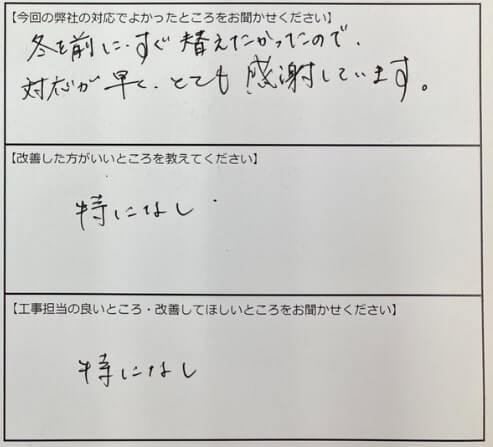 【今回の弊社の対応でよかったところをお聞かせください】
冬を前に、すぐ替えたかったので、
対応が早く、とても感謝しています。
【改善した方がいいところを教えてください】
特になし
【工事担当の良いところ・改善してほしいところをお聞かせください】
特になし